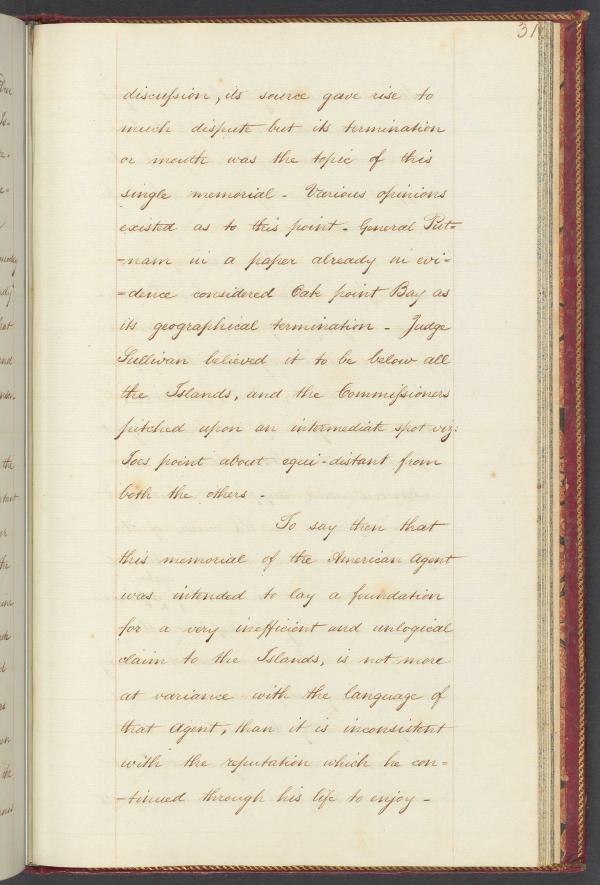 31
discussion, its source gave rise to
much dispute but its termination
or mouth was the topic of this
single memorial - Various opinions
existed as to this point - General Put=
=nam in a paper already in evi=
=dence considered Oak point Bay as
its geographical termination - Judge
Sullivan believed it to be below all
the Islands, and the Commissioners
pitched upon an intermediate spot viz:
Joes point about equi-distant from
both the others -
To say then that
this memorial of the American Agent
was intended to lay a foundation
for a very inefficient and unlogical
claim to the Islands, is not more
at variance with the language of
that Agent, than it is inconsistent
with the reputation which he con=
=tinued through his life to enjoy -